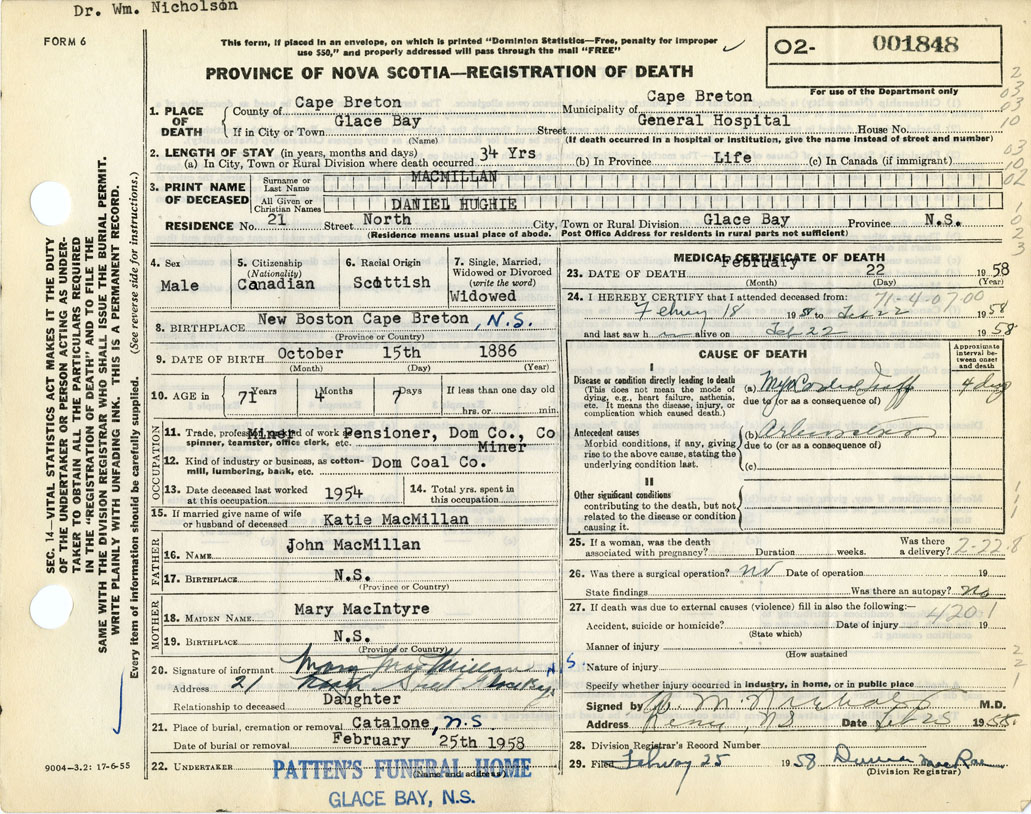 Dr. Wm. Nicholson
FORM 6
This form, if placed in an envelope, on which is printed "Dominion Statistics—Free, penalty for improper
use $50," and properly addressed will pass through the mail "FREE"
O2- 001848
For use of the Department only
PROVINCE OF NOVA SCOTIA—REGISTRATION OF DEATH
1. PLACE OF DEATH
County of Cape Breton Municipality of Cape Breton
If in City or Town Glace Bay Street General Hospital House No.
(Name) (If death occurred in a hospital or institution, give the name instead of street and number)
2. LENGTH OF STAY (in years, months and days)
(a) In City, Town or Rural Division where death occurred 34 Yrs (b) In Province Life (c) In Canada (if immigrant)
3. PRINT NAME OF DECEASED
Surname or Last Name MACMILLAN
All Given or Christian Names DANIEL HUGHIE
RESIDENCE No. 21 Street North City, Town or Rural Division Glace Bay Province N.S.
(Residence means usual place of abode. Post Office Address for residents in rural parts not sufficient)
4. Sex
Male
5. Citizenship
(Nationality)
Canadian
6. Racial Origin
Scottish
7. Single, Married,
Widowed or Divorced
(write the word)
Widowed
8. BIRTHPLACE New Boston Cape Breton, N.S.
(Province or Country)
9. DATE OF BIRTH October 15th 1886
(Month) (Day) (Year)
10. AGE in 71 Years 4 Months 7 Days If less than one day old
hrs. or min.
OCCUPATION
11. Trade, profession or kind of work as Miner Pensioner, Dom Co., Co
spinner, teamster, office clerk, etc. Miner
12. Kind of industry or business, as cotton- Dom Coal Co.
mill, lumbering, bank, etc.
13. Date deceased last worked
at this occupation 1954
14. Total yrs. spent in
this occupation
15. If married give name of wife
or husband of deceased Katie MacMillan
FATHER
16. NAME John MacMillan
17. BIRTHPLACE N.S.
(Province or Country)
MOTHER
18. MAIDEN NAME Mary MacIntyre
19. BIRTHPLACE N.S.
(Province or Country)
20. Signature of informant Mary MacMillan
Address 21 North Street Glace Bay N.S.
Relationship to deceased Daughter
21. Place of burial, cremation or removal Catalone, N.S
Date of burial or removal February 25th 1958
22. UNDERTAKER PATTEN'S FUNERAL HOME
(Name and address)
GLACE BAY, N.S.
9004—3.2: 17-6-55
SEC. 14—VITAL STATISTICS ACT MAKES IT THE DUTY
OF THE UNDERTAKER OR PERSON ACTING AS UNDER-
TAKER TO OBTAIN ALL THE PARTICULARS REQUIRED
IN THE "REGISTRATION OF DEATH" AND TO FILE THE
SAME WITH THE DIVISION REGISTRAR WHO SHALL ISSUE THE BURIAL PERMIT.
WRITE PLAINLY WITH UNFADING INK. THIS IS A PERMANENT RECORD.
Every item of information should be carefully supplied. (See reverse side for instructions.)
MEDICAL CERTIFICATE OF DEATH
23. DATE OF DEATH February 22 1958
(Month) (Day) (Year)
71-4-07-00
24. I HEREBY CERTIFY that I attended deceased from:
18 1958 to Feb 22 1958
and last saw h alive on Feb 22 1958
CAUSE OF DEATH
Approximate
interval be-
tween onset
and death
I
Disease or condition directly leading to death
(This does not mean the mode of
dying, e.g., heart failure, asthenia,
etc. It means the disease, injury, or
complication which caused death.)
(a)
due to (or as a consequence of)
4 days
Antecedent causes
Morbid conditions, if any, giving
rise to the above cause, stating the
underlying condition last.
(b)
due to (or as a consequence of)
(c)
II
Other significant conditions
contributing to the death, but not
related to the disease or condition
causing it.
25. If a woman, was the death
associated with pregnancy? Duration weeks. Was there
a delivery? 2-22-8
26. Was there a surgical operation? no Date of operation 19
State findings Was there an autopsy? no
27. If death was due to external causes (violence) fill in also the following:—
420.1
Accident, suicide or homicide? Date of injury 19
(State which)
Manner of injury
(How sustained
Nature of injury
Specify whether injury occurred in industry, in home, or in public place
Signed by M.D.
Address NS Date Feb 25 1958.
28. Division Registrar's Record Number
29. Filed 25 1958
(Division Registrar)